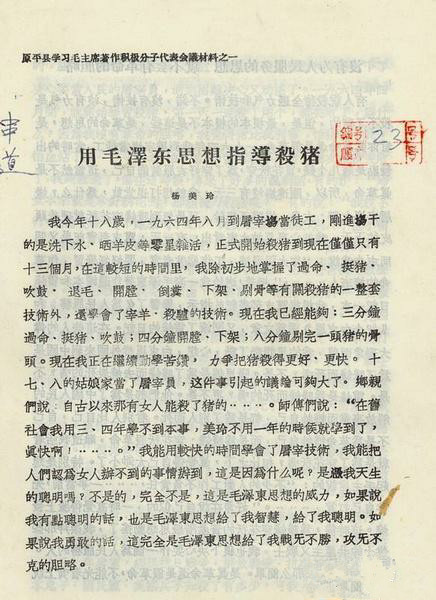 原平县学习毛主席著作积极分子代表会議材料之一
申道
编号
顺序
23
号
号
用毛澤东思想指导殺猪
杨美玲
我今年十八歲，一九六四年八月到屠宰場當徒工，剛進場干
的是洗下水、晒羊皮等零星雜活，正式開始殺猪到現在僅僅只有
十三個月，在這較短的時間里，我除初步地掌握了過命、挺猪、
吹鼓、退毛、開膛、倒糞、下架、剔骨等有關殺猪的一整套
技術外，還學會了宰羊、殺驢的技術。現在我已經能夠：三分鐘
過命、挺猪、吹鼓；四分鐘開膛、下架；八分鐘剔完一頭猪的骨
頭。現在我正在繼續勤學苦鑽，力爭把猪殺得更好、更快。十
七、八的姑娘家當了屠宰員，这件事引起的議論可夠大了。鄉親
們說，自古以來那有女人能殺了猪的·····。師傅們說：“在舊
社會我用三、四年學不到本事，美玲不用一年的時候就學到了，
眞快啊！·····。”我能用較快的時間學會了屠宰技術，我能把
人們認爲女人辦不到的事情辦到，這是因爲什么呢？是憑我天生
的聰明嗎？不是的，完全不是，這是毛澤東思想的威力，如果說
我有點聰明的話，也是毛澤東思想給了我智慧，給了我聰明。如
果說我勇敢的話，這完全是毛澤東思想給了我戰旡不勝，攻旡不
克的胆略。